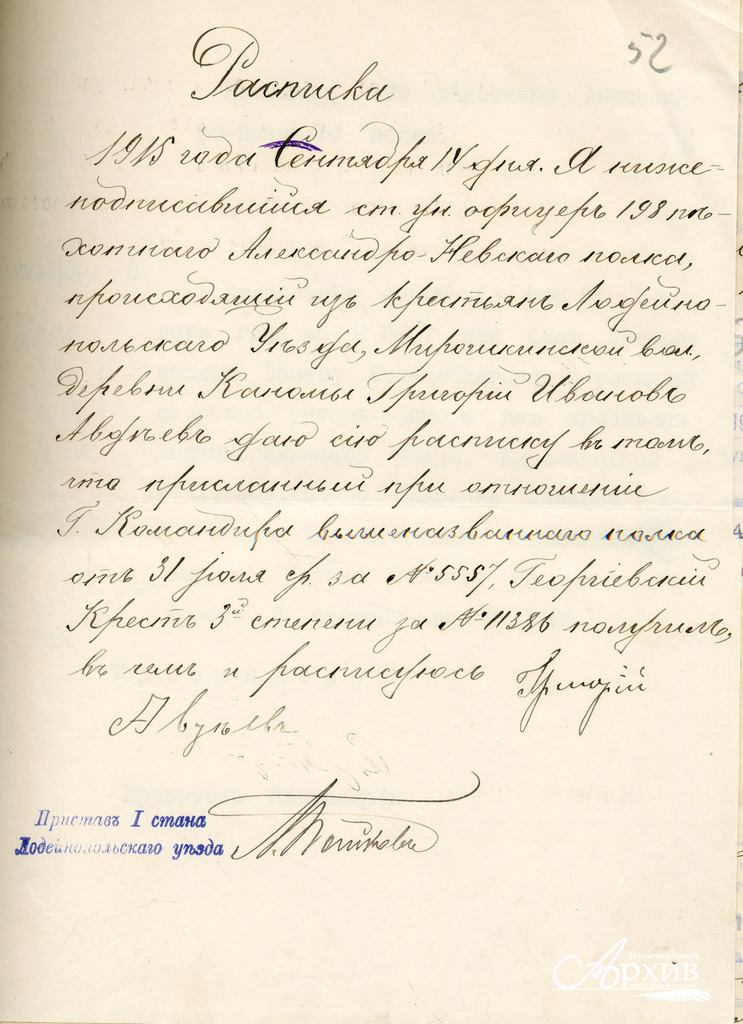 52
Расписка
1915 года Сентября 14 дня. Я ниже-
подписавшійся ст. ун. офицеръ 198 пѣ-
хотнаго Александро-Невскаго полка,
происходящій изъ крестьянъ Лодейно-
польскаго Уѣзда, Мирошкинской вол.,
деревни Каномы Григорій Ивановъ
Авдѣевъ даю сію расписку въ томъ,
что присланный при отношеніи
Г. Командира вышеназваннаго полка
отъ 31 іюля с.г. за № 5557, Георгіевскій
Крестъ 3й степени за № 11386 получилъ,
въ чемъ и расписуюсь Григорій
Авдѣевъ
Приставъ I стана
Лодейнопольскаго уѣзда
Национальный
Архив